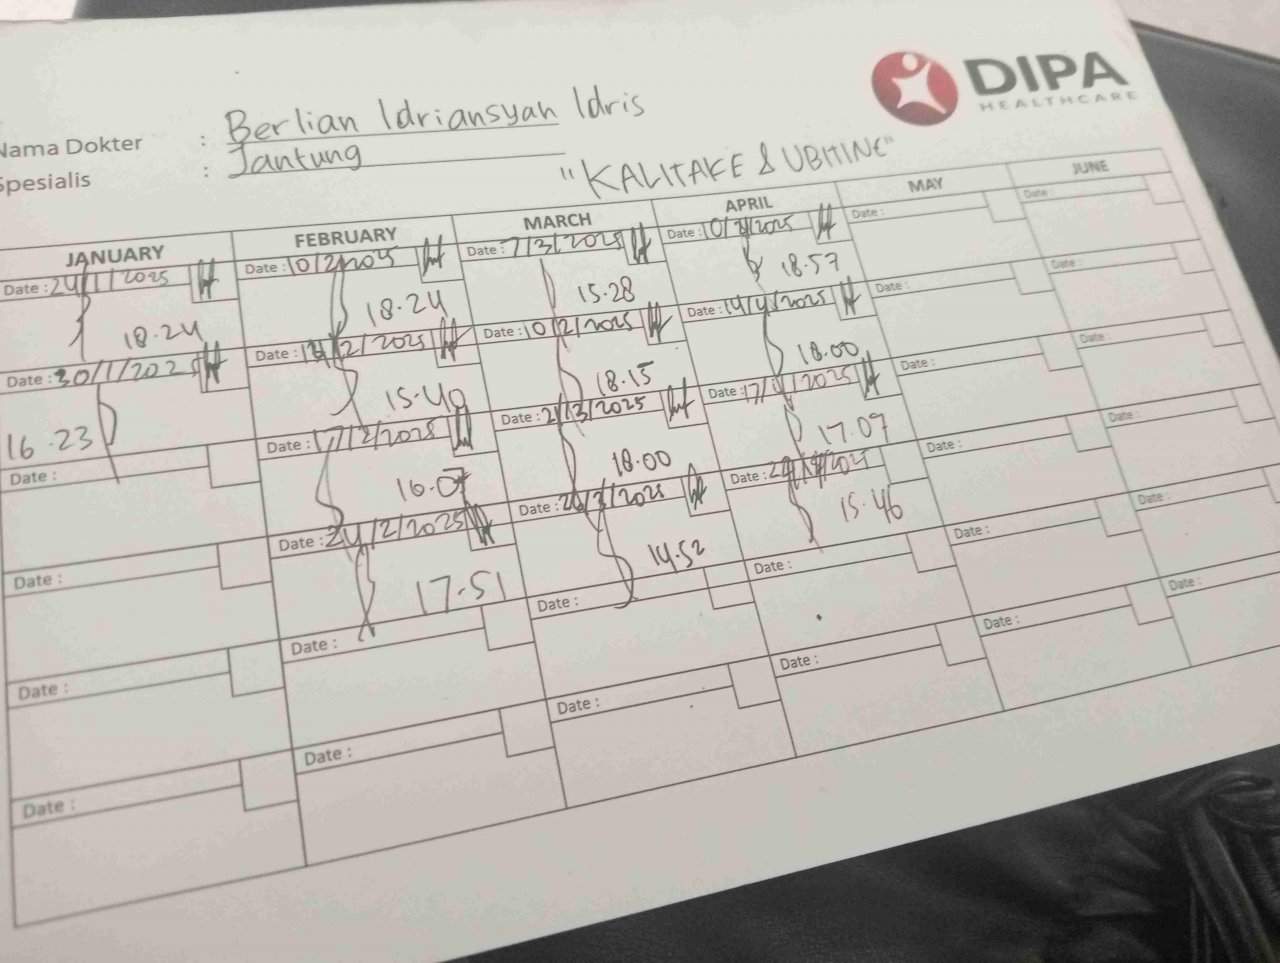 DIPA
HEALTHCARE
Nama Dokter : Berlian Idriansyah Idris
Spesialis : Jantung
"KALITAKE & UBITINE"
JANUARY FEBRUARY MARCH APRIL MAY JUNE
Date : 24/1/2025 Date : 10/2/2025 Date : 7/3/2025 Date : 10/ /2025 Date : Date :
18.24 18.24 15.28 18.57
Date : 30/1/2025 Date : 14/2/2025 Date : 10/2/2025 Date : 14/4/2025 Date : Date :
16.23 15.40 18.15 18.00
Date : Date : 17/2/2025 Date : 21/3/2025 Date : 17/ /2025 Date : Date :
16.07 18.00 17.09
Date : Date : 24/2/2025 Date : 26/3/2025 Date : 2025 Date : Date :
17.51 14.52 15.46
Date : Date : Date : Date : Date : Date :
Date : Date : Date : Date : Date : Date :